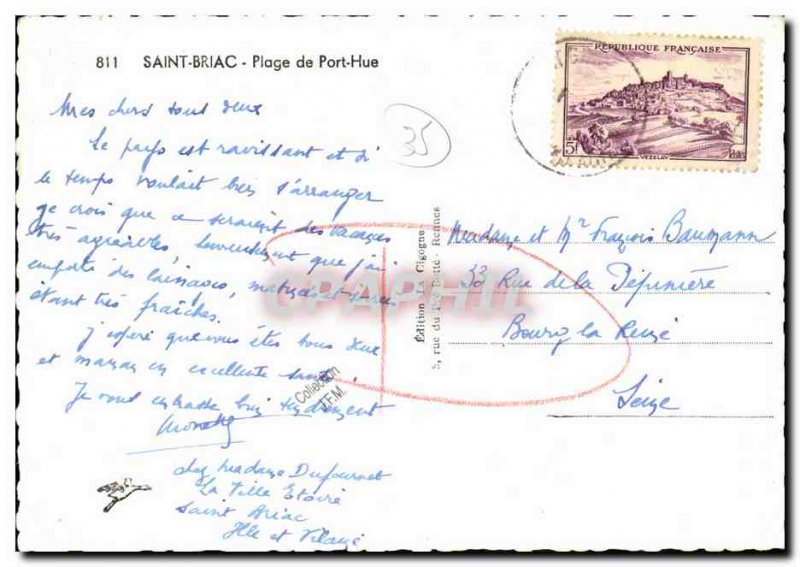 811 SAINT-BRIAC - Plage de Port-Hue
Mes chers tous deux
Le pays est ravissant et si
le temps voulait bien s'arranger
je crois que ce seraient des vacances
très agréables, heureusement que j'ai
emporté des lainages, matinées et soirées
étant très fraîches.
J'espère que vous êtes tous deux
et maman en excellente santé.
Je vous embrasse bien tendrement
chez Madame Dufournet
La Ville Etoire
Saint Briac
Ille et Vilaine
35
REPUBLIQUE FRANÇAISE
5f
VEZELAY
Edition La Cigogne
5, rue du Rennes
Madame et Mr François Baumann
33 Rue de la Pépinière
Bourg la Reine
Seine
CPAPHIL
Collection
J.F.M.